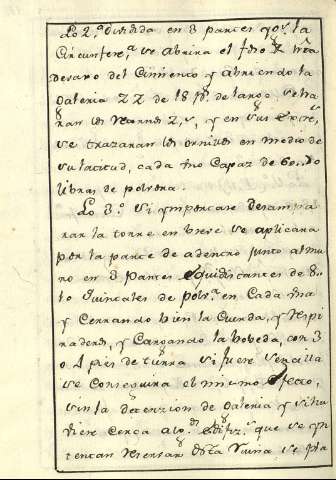 Lo 2.º dividida en 3 partes yg.s la
Circunfer.ª se abrira el foso
devaxo del Cimiento y abriendo la
Galeria ZZ de 18 p.s de largo, se ha
ran los Ramales Z, y en sus
se trazaran los ornillos en medio de
su latitud, cada uno Capaz de 60
libras de polvora.
Lo 3.º Si ymportase desampa
rar la torre en breve se aplicaria
por la parte de adentro junto al mu
ro en 3 partes equidistantes de
to quintales de polv.ª en Cada una
y Cerrando bien la Cuerda, y respi
raderos, y Cargando la bobeda, con 3
o 4 pies de tierra si fuere sencilla
se Conseguira el mismo efecto,
sin la detenzion de Galeria y si hu
viere cerca alg.os edifiz.os que se yn
tentan Reservar desta Ruina, se